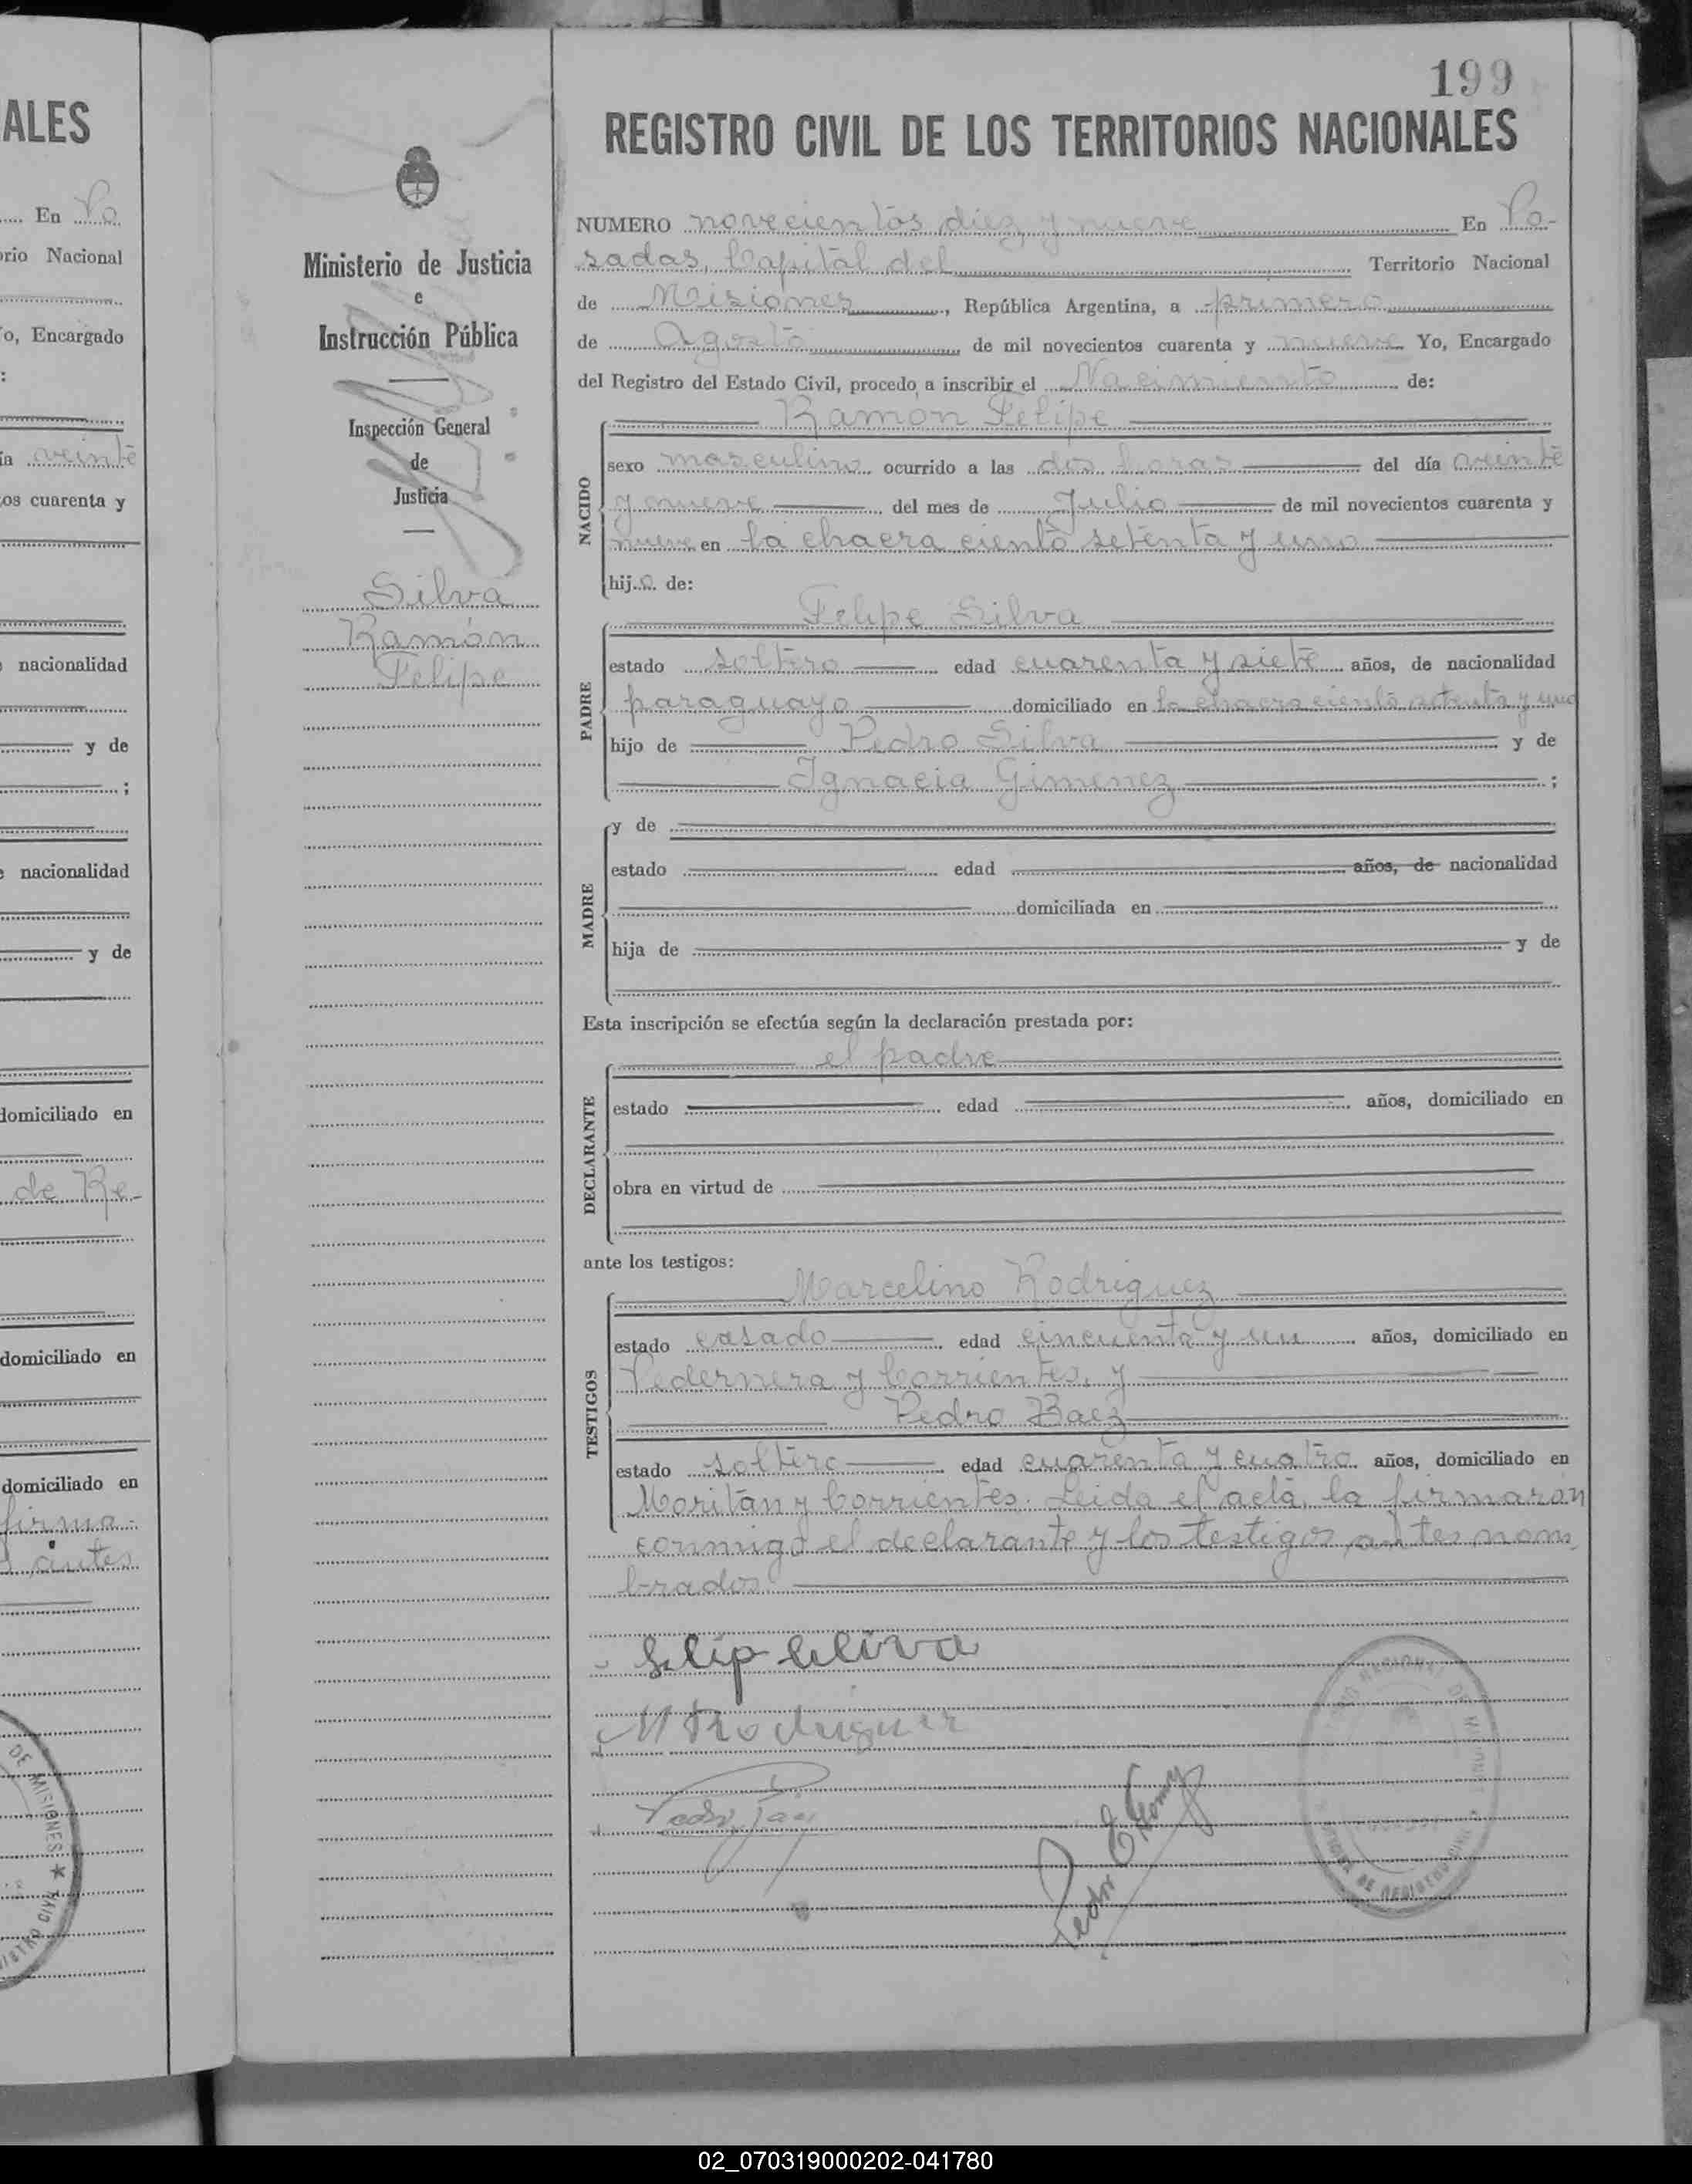 ALES
En Po
rio Nacional
o, Encargado
:
ía veinte
os cuarenta y
nacionalidad
y de
;
nacionalidad
y de
domiciliado en
de Re-
domiciliado en
domiciliado en
firma-
antes
DE MISIONES ★
199
REGISTRO CIVIL DE LOS TERRITORIOS NACIONALES
Ministerio de Justicia
e
Instrucción Pública
Inspección General
de
Justicia
Silva
Ramón
Felipe
NUMERO novecientos diez y nueve En Po-
sadas, Capital del Territorio Nacional
de Misiones, República Argentina, a primero
de Agosto de mil novecientos cuarenta y nueve Yo, Encargado
del Registro del Estado Civil, procedo a inscribir el Nacimiento de:
NACIDO
Ramon Felipe
sexo masculino ocurrido a las dos horas del día veinte
y nueve del mes de Julio de mil novecientos cuarenta y
nueve en la chacra ciento setenta y uno
hijo de:
PADRE
Felipe Silva
estado soltero edad cuarenta y siete años, de nacionalidad
paraguayo domiciliado en la chacra ciento setenta y uno
hijo de Pedro Silva y de
Ignacia Gimenez ;
MADRE
y de
estado edad años, de nacionalidad
domiciliada en
hija de y de
Esta inscripción se efectúa según la declaración prestada por:
DECLARANTE
el padre
estado edad años, domiciliado en
obra en virtud de
ante los testigos:
TESTIGOS
Marcelino Rodriguez
estado casado edad cincuenta y un años, domiciliado en
Pedernera y Corrientes, y
Pedro Baez
estado soltero edad cuarenta y cuatro años, domiciliado en
Moritán y Corrientes. Leida el acta, la firmaron
conmigo el declarante y los testigos antes nom
brados.
M Rodriguez
02_070319000202-041780